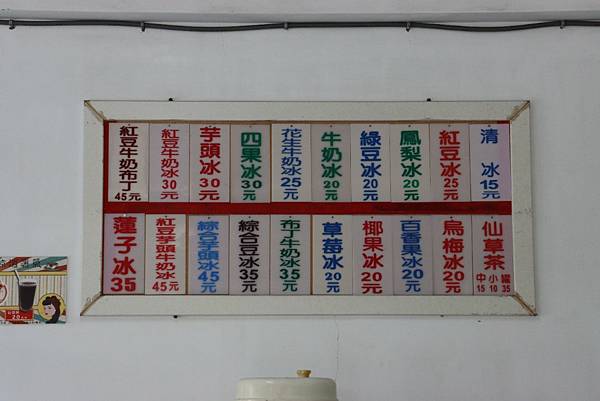 紅豆牛奶布丁45元
紅豆牛奶冰30元
芋頭冰30元
四果冰30元
花生牛奶冰25元
牛奶冰20元
綠豆冰20元
鳳梨冰20元
紅豆冰25元
清冰15元
蓮子冰35
紅豆芋頭牛奶冰45元
綜合子頭冰45元
綜合豆冰35元
布丁牛奶冰35元
草莓冰20元
椰果冰20元
百香果冰20元
烏梅冰20元
仙草茶
中小罐
15 10 35